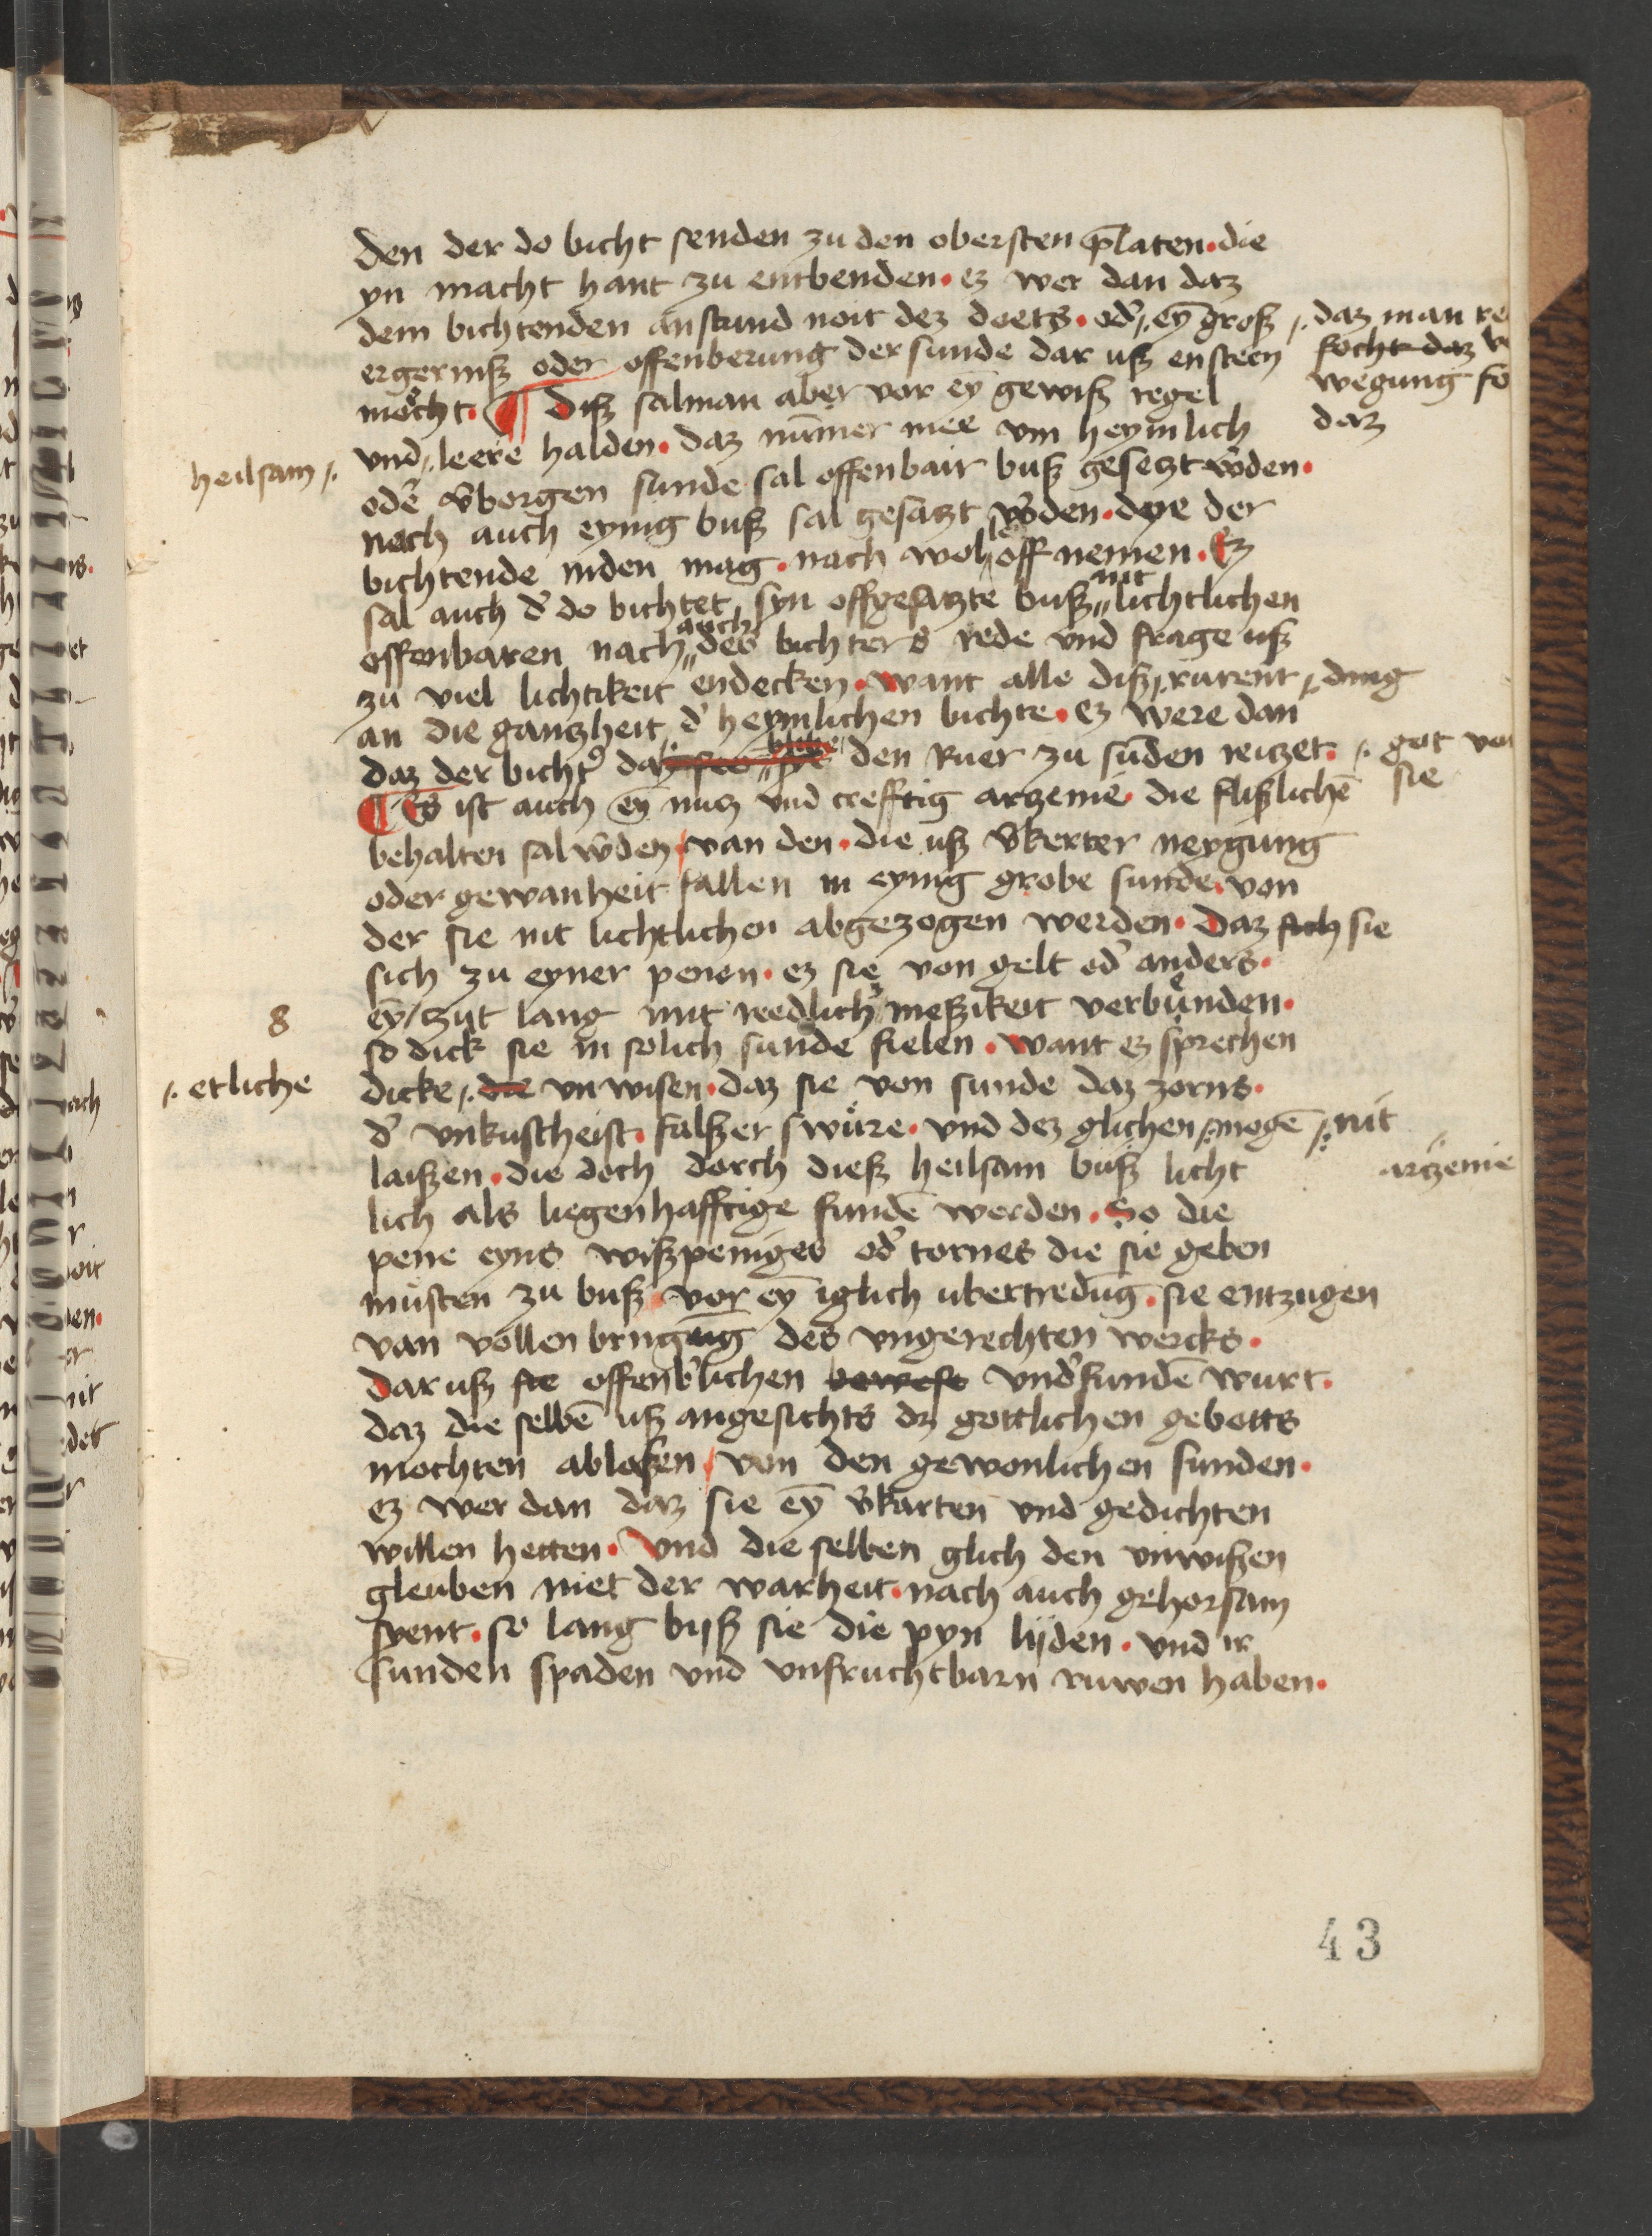 den der do bicht senden zu den obersten p̄laten · die
yn macht hant zu entbenden · ez wer dan daz
dem bichtenden anstund noit dez doets · od᷑ eȳ groß
daz man re
ergerniß oder offenberung der sunde dar uß ensteen
focht daz v
mocht · ¶ Diß salman aber vor eȳ gewiß regel
wegung fo
und leere halden · daz nūmer mee vm heymlich
daz
heilsam
ode᷑ v᷑borgen sunde sal offenbair buß gesetzt w᷑den ·
nach auch eynig buß sal gesatzt w᷑den · dye der
bichtende niden mag · nach wol off nemen · Ez
sal auch d᷑ do bichtet syn offgesatzte buß nit lichtlichen
offenbaren nach auch des bichters rede und frage uß
zu viel lichtikeit endecken · want alle diß rurent
ding
an die gantzheit d᷑ heymlichen bichte · ez were dan
daz der bicht᷑ daz den Ruer zu sūden reitzet ·
got vo
sie
¶ Es ist auch eȳ nutz und crefftig artzenie die flißlichē
behalten sal w᷑den van den · die uß v᷑kerter neygung
oder gewanheit fallen in eynig grobe sunde von
der sie nit lichtlichen abgezogen werden · Daz sich sie
sich zu eyner penen · ez sie von gelt od᷑ anders ·
eȳ zijt lang mit redlich᷑ meßikeit verbunden ·
8
so dick sie in solich sunde fielen · want ez sprechen
dicke die unwisen · daz sie von sunde daz zorns ·
etliche
d᷑ unkuscheist · falßer swůre · und dez glichen mogē
nit
laißen · die doch dorch dieß heilsam buß licht
artzenie
lich als liegenhafftige fundē werden · So die
pene eyns wißpeniges od᷑ tornes die sie geben
musten zu buß vor eȳ iglich ubertredūg · sie entzugen
van vollenbringung des ungerechten wercks ·
dar uß sie offenb᷑lichen bewest und᷑fundē wurt ·
daz die selbē uß angesichts dz gottlichen gebotts
mochten ablaßen von den gewonlichen sunden ·
ez wer dan daz sie eȳ v᷑karten und gedichten
willen hetten · Und die selben glich den unwißen
gleuben niet der warheit · nach auch gehorsam
syent · so lang biß sie die pyn lijden · und ir
sunden spaden und unfruchtbarn ruwen haben ·
43